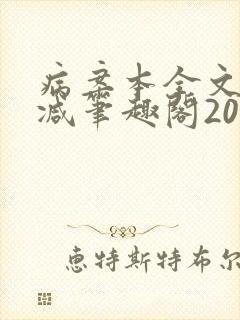 病案本全文
减笔趣阁20
惠特斯特布尔